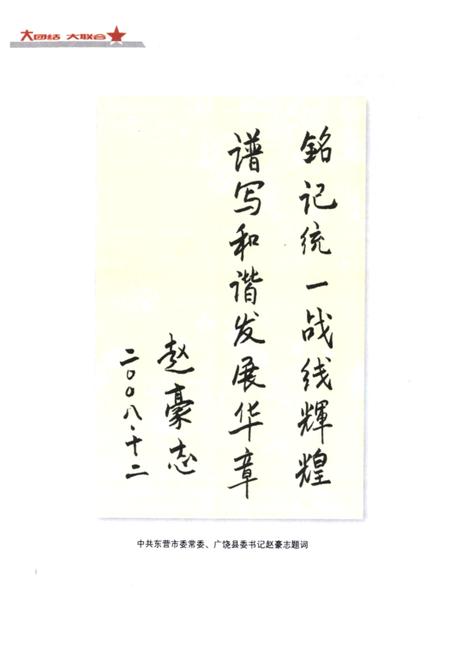 大团结 大联合
铭记统一战线輝煌
谱写和谐发展华章
赵豪志
二〇〇八·十二
中共东营市委常委、广饶县委书记赵豪志题词